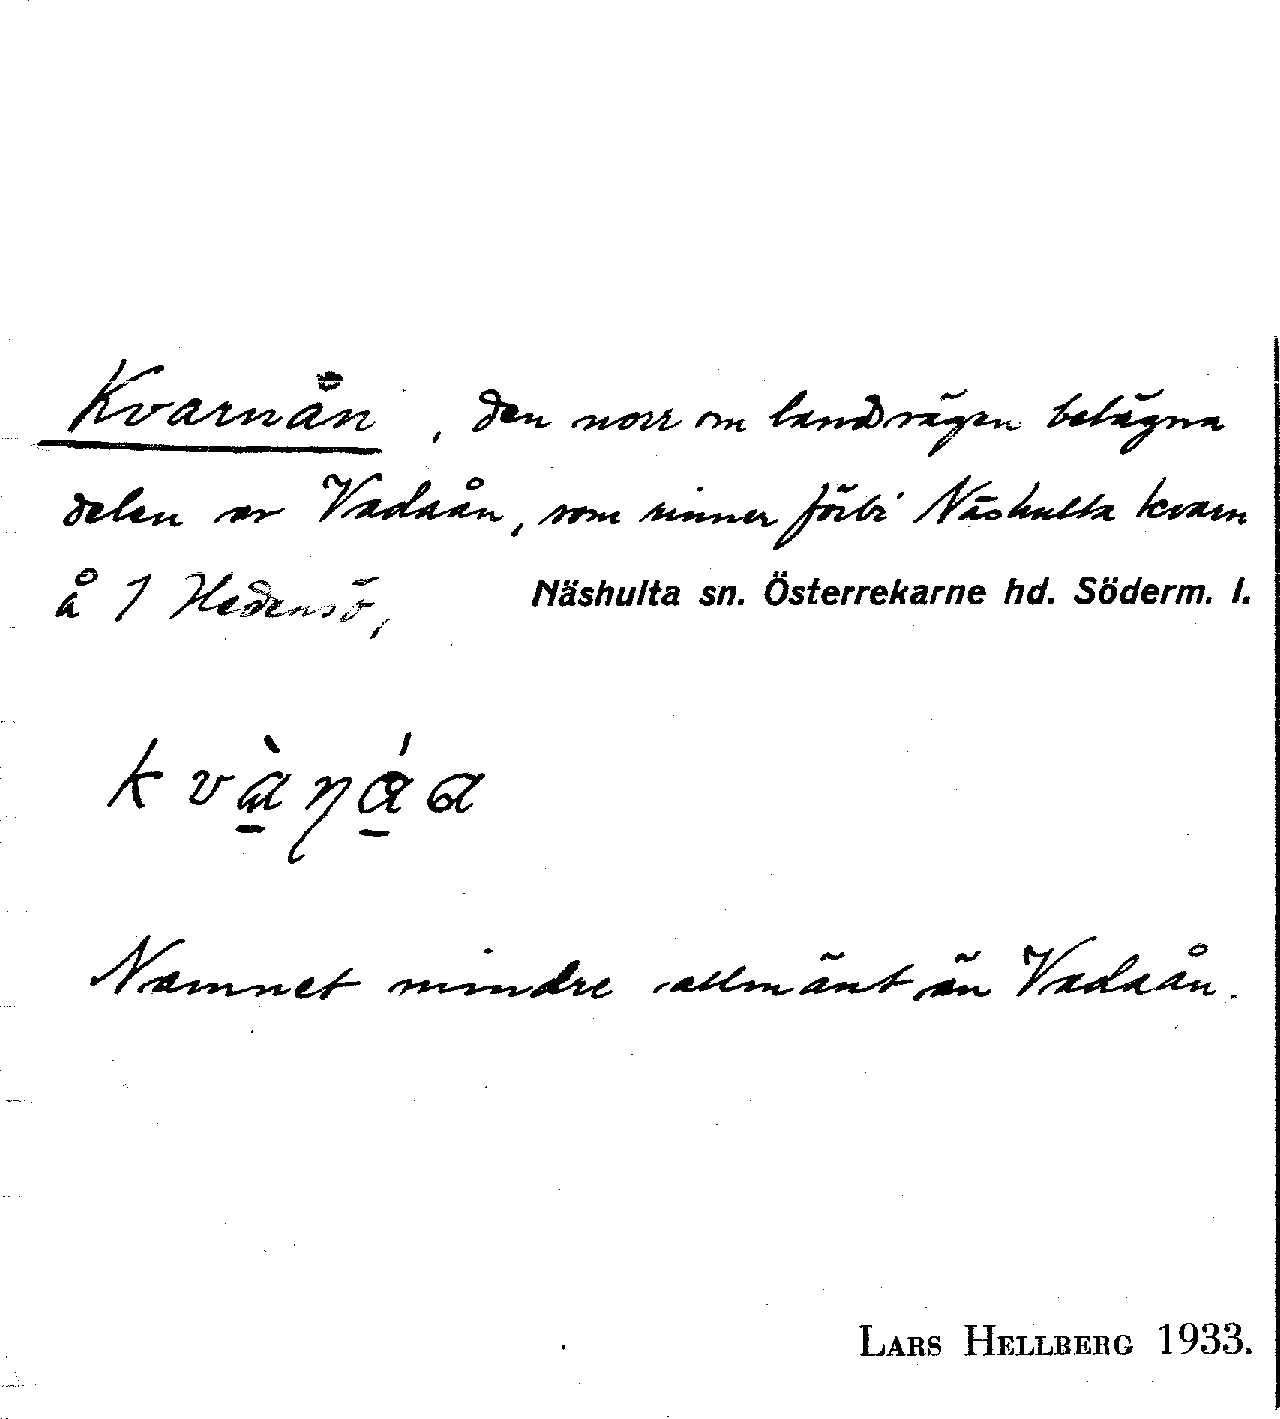 Kvarnån, den norr om landsvägen belägna
delen av Vadaån, som rinner förbi Näshulta kvarn
å 1 Hedensö, Näshulta sn. Österrekarne hd. Söderm. l.
Namnet mindre allmänt än Vadaån.
LARS HELLBERG 1933.